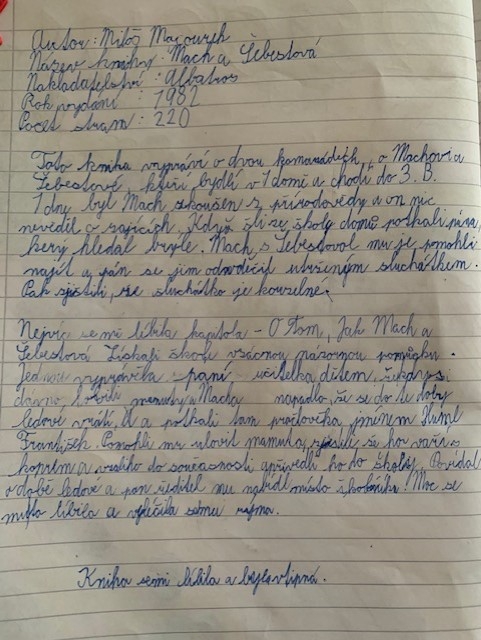 Autor: Miloš Macourek
Název knihy: Mach a Šebestová
Nakladatelství: Albatros
Rok vydání: 1982
Počet stran: 220
Tato kniha vypráví o dvou kamarádech, o Machovi a
Šebestové, kteří bydlí v 1 domě a chodí do 3. B.
1 dne byl Mach zkoušen z přírodovědy a on nic
nevěděl o zajících. Když šli ze školy domů potkali pána,
kerý hledal brýle. Mach s Šebestovol mu je pomohli
najít a pán se jim odvděčil utrženým sluchátkem.
Pak zjistili, že sluchátko je kouzelné.
Nejvíc se mi líbila kapitola - O tom, Jak Mach a
Šebestová získali škole vzácnou názornou pomůcku.
Jednou vyprávěla paní učitelka dětem, že kdysi
dávno, mamuty a Macha napadlo, že se do té doby
ledové vrátí. A a potkali tam pračlověka, jménem Huml
František. Pomohli mu ulovit mamuta, zjistili že ho vaří s
koprem a vzali ho do současnosti a přivedli ho do školy. Povídal
o době ledové a pan ředitel mu nabídl místo školníka. Moc se
mi to líbilo a
Kniha se mi líbila a byla vtipná.